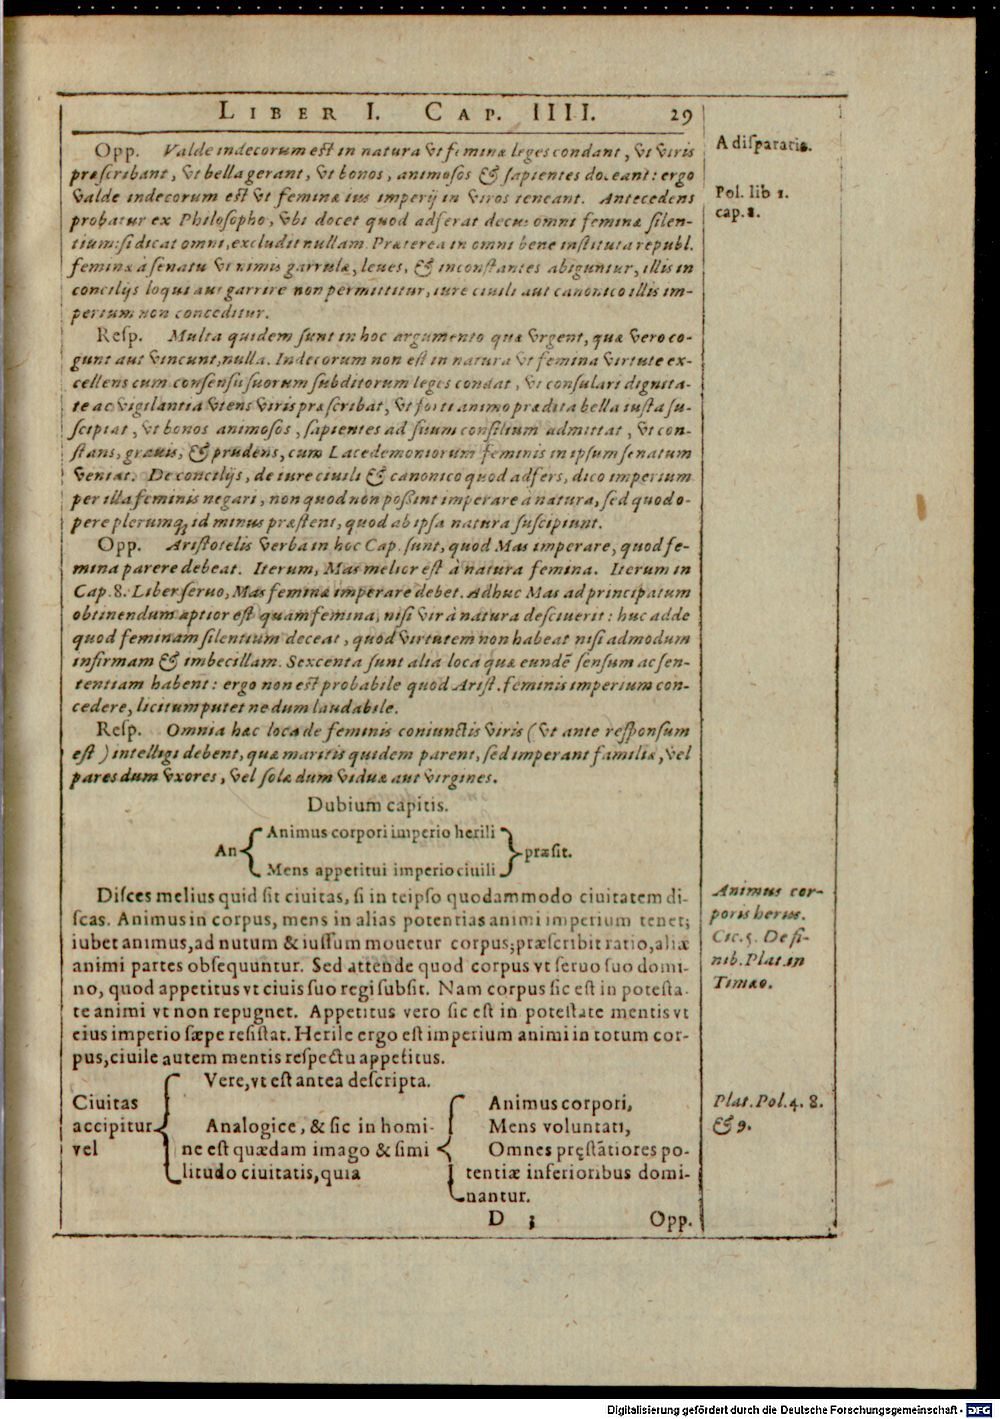 LIBER I. CAP. IIII. 29
Opp. Valde indecorum est in natura vt feminæ leges condant, vt viris
præscribant, vt bella gerant, vt bonos, animosos & sapientes doceant: ergo
valde indecorum est vt feminæ ius imperij in viros teneant. Antecedens
probatur ex Philosopho, vbi docet quod adferat decus omni feminæ silen-
tium: si dicat omni, excludit nullam. Præterea in omni bene instituta republ.
feminæ à senatu vt nimis garrulæ, leues, & inconstantes abiguntur, illis in
concilijs loqui aut garrire non permittitur, iure ciuili aut canonico illis im-
perium non conceditur.
A disparatis.
Pol. lib 1.
cap. 8.
Resp. Multa quidem sunt in hoc argumento quæ vrgent, quæ vero co-
gunt aut vincunt, nulla. Indecorum non est in natura vt femina virtute ex-
cellens cum consensu suorum subditorum leges condat, vt consulari dignita-
te ac vigilantia vtens viris præscribat, vt forti animo prædita bella iusta su-
scipiat, vt bonos animosos, sapientes ad suum consilium admittat, vt con-
stans, grauis, & prudens, cum Lacedemoniorum feminis in ipsum senatum
veniat. De concilijs, de iure ciuili & canonico quod adfers, dico imperium
per illa feminis negari, non quod non possint imperare à natura, sed quod o-
pere plerumq; id minus præstent, quod ab ipsa natura suscipiunt.
Opp. Aristotelis verba in hoc Cap. sunt, quod Mas imperare, quod fe-
mina parere debeat. Iterum, Mas melior est à natura femina. Iterum in
Cap. 8. Liber seruo, Mas feminæ imperare debet. Adhuc Mas ad principatum
obtinendum aptior est quam femina, nisi vir à natura desciuerit: huc adde
quod feminam silentium deceat, quod virtutem non habeat nisi admodum
infirmam & imbecillam. Sexcenta sunt alia loca quæ eundē sensum ac sen-
tentiam habent: ergo non est probabile quod Arist. feminis imperium con-
cedere, licitum putet nedum laudabile.
Resp. Omnia hæc loca de feminis coniunctis viris (vt ante responsum
est) intelligi debent, quæ maritis quidem parent, sed imperant familiæ, vel
pares dum vxores, vel solæ dum viduæ aut virgines.
Dubium capitis.
An { Animus corpori imperio herili
Mens appetitui imperio ciuili } præsit.
Disces melius quid sit ciuitas, si in teipso quodammodo ciuitatem di-
scas. Animus in corpus, mens in alias potentias animi imperium tenet;
iubet animus, ad nutum & iussum mouetur corpus; præscribit ratio, aliæ
animi partes obsequuntur. Sed attende quod corpus vt seruo suo domi-
no, quod appetitus vt ciuis suo regi subsit. Nam corpus sic est in potesta-
te animi vt non repugnet. Appetitus vero sic est in potestate mentis vt
eius imperio sæpe resistat. Herile ergo est imperium animi in totum cor-
pus, ciuile autem mentis respectu appetitus.
Animus cor-
poris herus.
Cic. 5. De fi-
nib. Plat. in
Timæo.
Ciuitas
accipitur
vel
Vere, vt est antea descripta.
Analogice, & sic in homi-
ne est quædam imago & simi
litudo ciuitatis, quia
Animus corpori,
Mens voluntati,
Omnes pręstātiores po-
tentiæ inferioribus domi-
nantur.
Plat. Pol. 4. 8.
& 9.
D ; Opp.
Digitalisierung gefördert durch die Deutsche Forschungsgemeinschaft - DFG